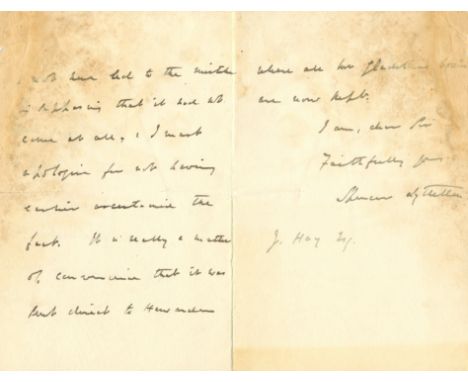 not have led to the mistake
in supposing that it had not
come at all, & I must
apologise for not having
earlier ascertained the
fact. It is really a matter
of convenience that it was
sent direct to Hawarden
where all Mr Gladstone's
are now kept.
I am, dear Sir
Faithfully yrs
Spencer Lyttelton
J. Hay Esq.